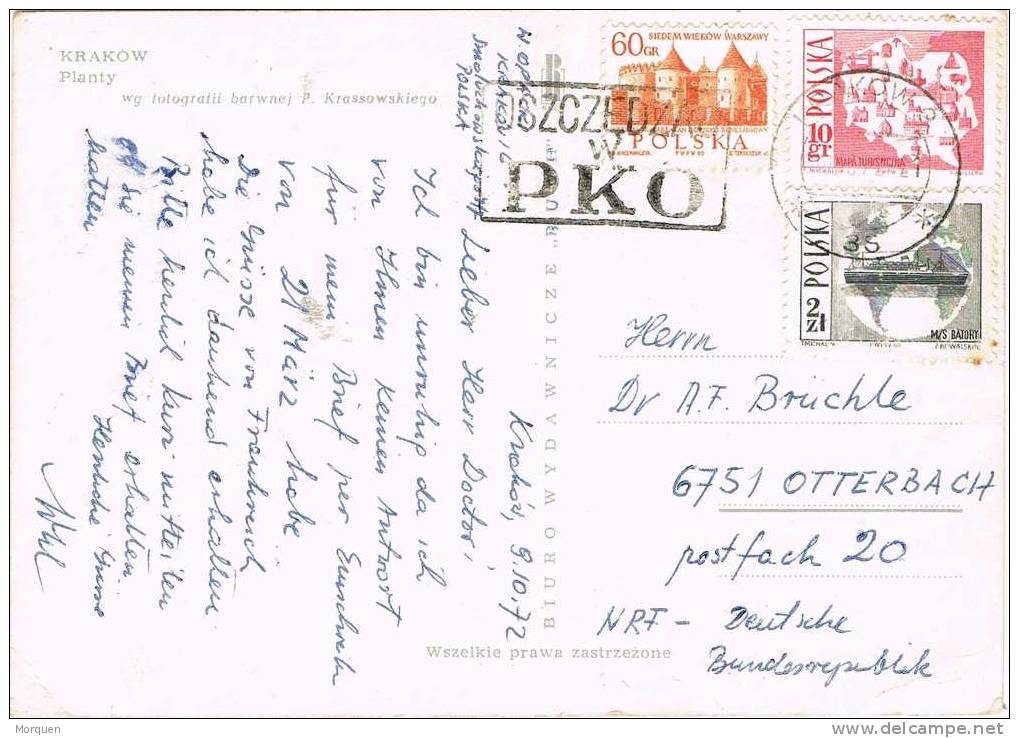 KRAKÓW
Planty
wg fotografii barwnej P. Krassowskiego
W. OPACKI
KRAKÓW 16
POLSKA
Kraków, 9.10.72
Lieber Herr Doctor,
Ich bin unruhig da ich
von Ihnen keinen Antwort
für mein Brief per Einschreib
von 29 März habe
Die Grüsse von Frankreich
habe ich dankend erhalten
Bitte herzlich kurz mitteilen
ob Sie meinen Brief erhalten
hatten
Herzliche Grüsse
BIURO WYDAWNICZE "RUCH"
Wszelkie prawa zastrzeżone
60 GR
SIEDEM WIEKÓW WARSZAWY
POLSKA
OSZCZĘDZAJ
W
PKO
POLSKA
10 gr
MAPA TURYSTYCZNA
POLSKA
2 zł
M/S BATORY
Herrn
Dr A.F. Brüchle
6751 OTTERBACH
postfach 20
NRF - Deutsche
Bundesrepublik
Morquen
delcampe.net